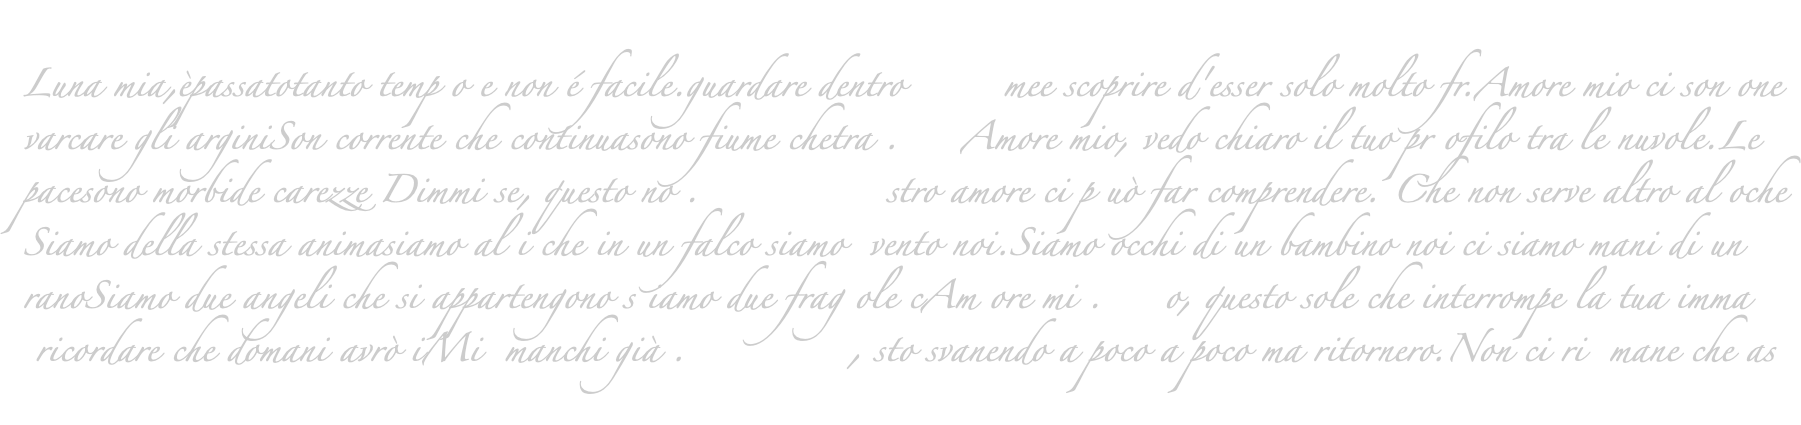 Luna mia,èpassatotanto temp o e non é facile.guardare dentro mee scoprire d'esser solo molto fr.Amore mio ci son one
varcare gli arginiSon corrente che continuasono fiume chetra . Amore mio, vedo chiaro il tuo pr ofilo tra le nuvole.Le
pacesono morbide carezze Dimmi se, questo no . stro amore ci p uò far comprendere. Che non serve altro al oche
Siamo della stessa animasiamo al i che in un falco siamo vento noi.Siamo occhi di un bambino noi ci siamo mani di un
ranoSiamo due angeli che si appartengono s iamo due frag ole cAm ore mi . o, questo sole che interrompe la tua imma
ricordare che domani avrò iMi manchi già . , sto svanendo a poco a poco ma ritornero.Non ci ri mane che as